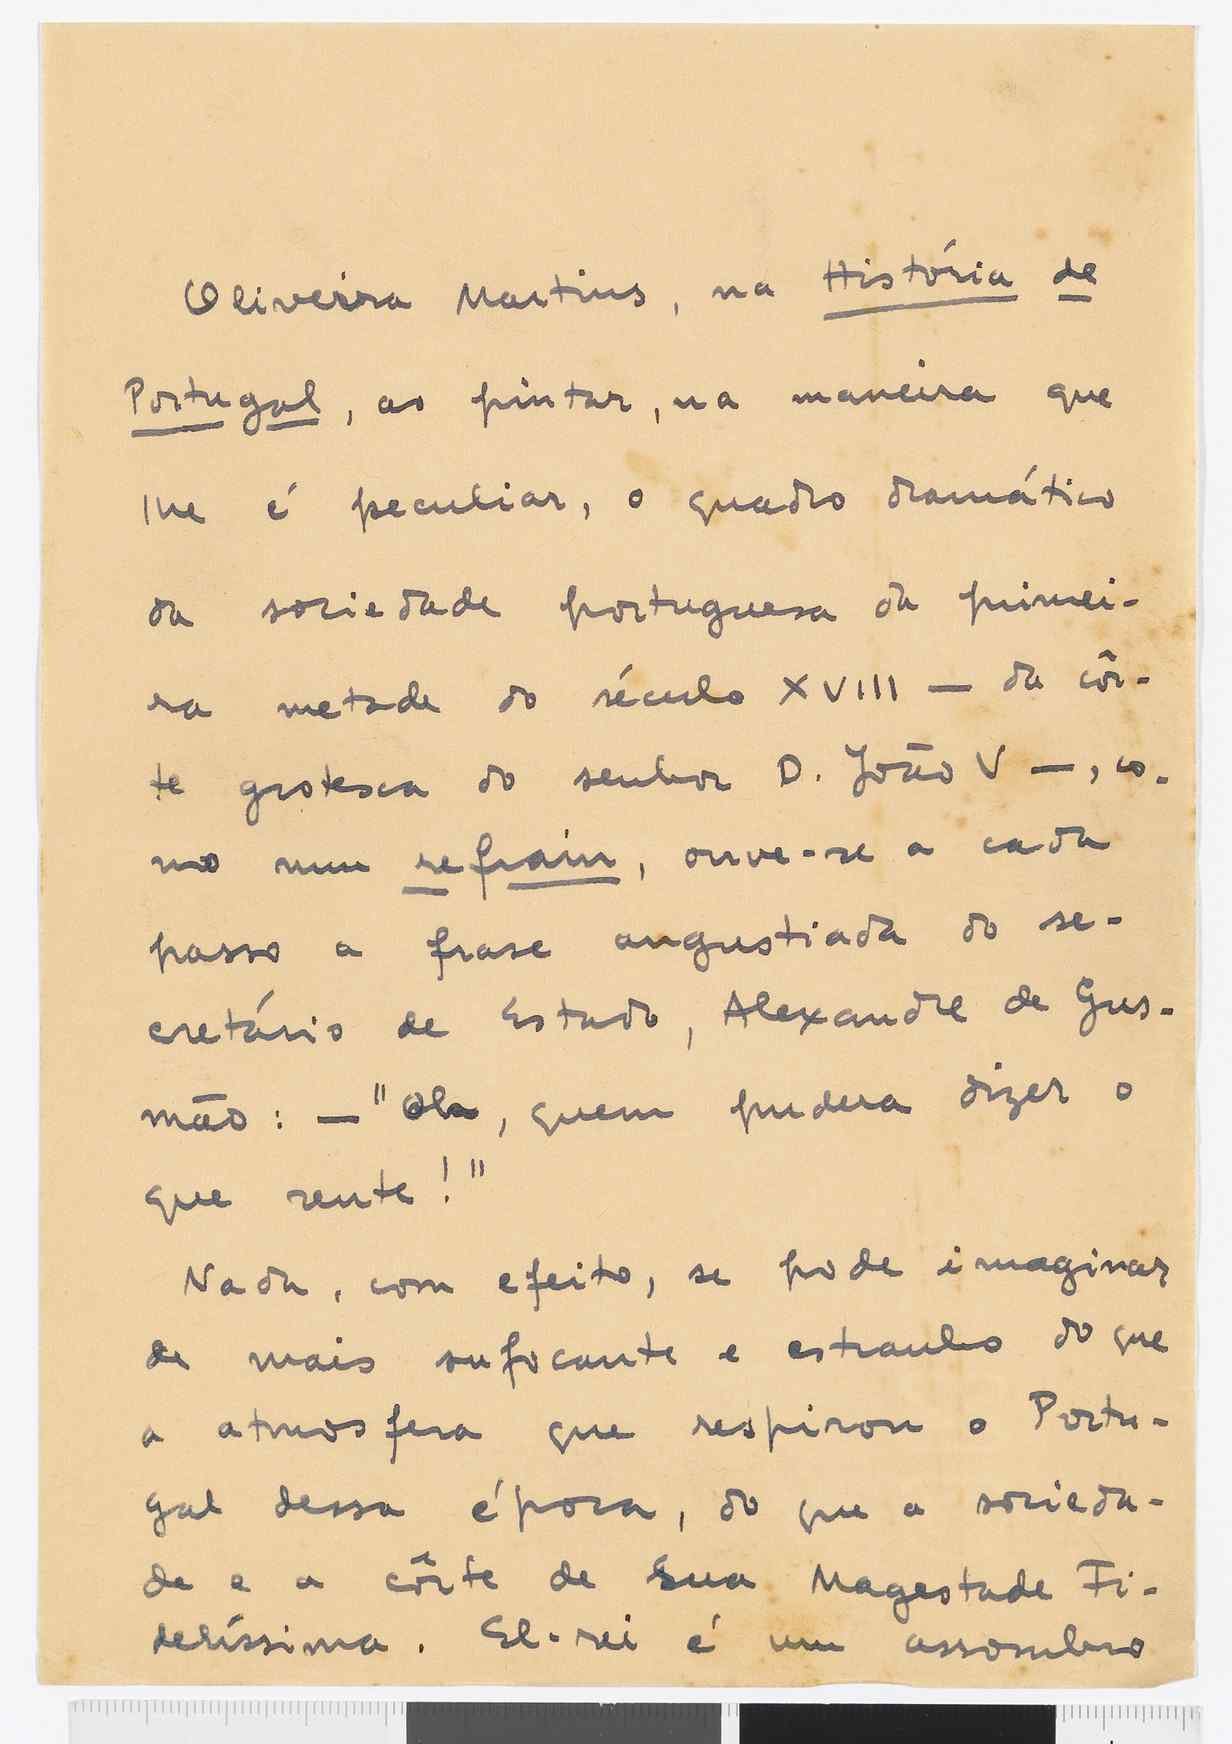 Oliveira Martins, na História de
Portugal, ao pintar, na maneira que
lhe é peculiar, o quadro dramático
da sociedade portuguesa da primei-
ra metade do século XVIII — da côr-
te grotesca do senhor D. João V —, co-
mo num refrain, ouve-se a cada
passo a frase angustiada do se-
cretário de Estado, Alexandre de Gus-
mão: — "Oh, quem pudera dizer o
que sente!"
Nada, com efeito, se pode imaginar
de mais sufocante e estranho do que
a atmosfera que respirou o Portu-
gal dessa época, do que a socieda-
de e a côrte de Sua Magestade Fi-
delíssima. El-rei é um assombro